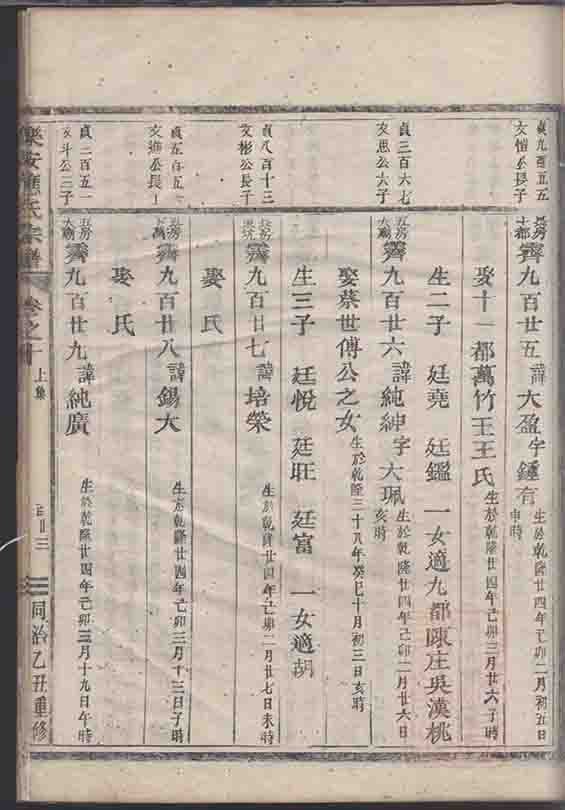 貞九百五五
文愷公長子
長房
十都
霽九百廿五諱大盈字鍾有
生於乾隆廿四年己卯二月初五日
申時
娶十一都萬竹王王氏
生於乾隆廿四年己卯三月廿六子時
生二子 廷堯 廷鑑 一女適九都陳庄吳漢桃
貞三百六七
文思公六子
五房
大廟
霽九百廿六諱純紳字大珮
生於乾隆廿四年己卯二月廿六日
亥時
娶蔡世傅公之女
生於乾隆三十八年癸巳十月初三日亥時
生三子 廷悅 廷旺 廷富 一女適胡
貞八百十三
文彬公長子
長房
霽九百廿七諱培榮
生於乾隆廿四年己卯二月廿七日未時
娶氏
貞五百五
文進公長
五房
霽九百廿八諱錫大
生於乾隆廿四年己卯三月十三日子時
娶氏
貞二百五一
文斗公三子
五房
大廟
霽九百廿九諱純廣
生於乾隆廿四年己卯三月十九日午時
樂安 氏宗譜
卷之 上集
同治乙丑重修